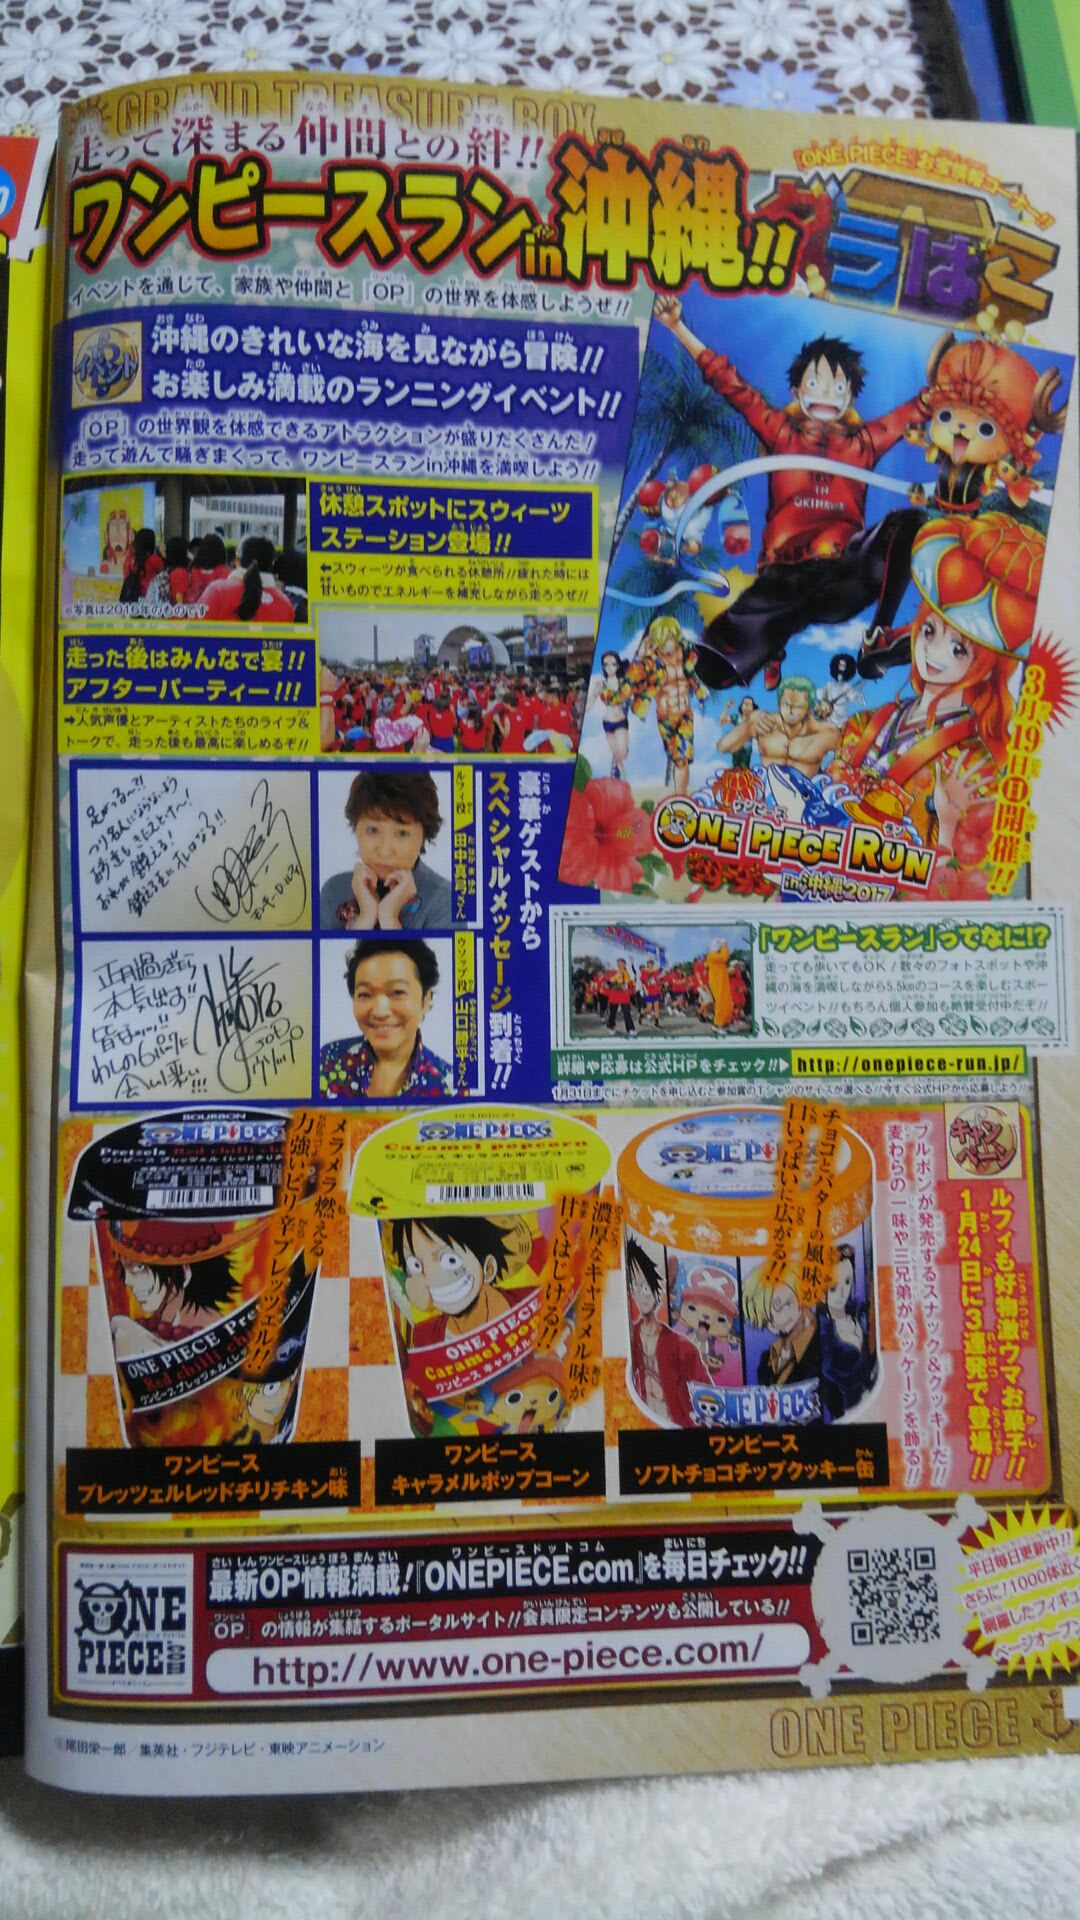 GRAND TREASURE BOX
走って深まる仲間との絆!!
ワンピースランin沖縄!!
『ONE PIECE』お宝情報コーナー!!
グラばこ
イベントを通じて、家族や仲間と『OP』の世界を体感しようぜ!!
イベント
沖縄のきれいな海を見ながら冒険!!
お楽しみ満載のランニングイベント!!
『OP』の世界観を体感できるアトラクションが盛りだくさんだ!
走って遊んで騒ぎまくって、ワンピースランin沖縄を満喫しよう!!
休憩スポットにスウィーツ
ステーション登場!!
←スウィーツが食べられる休憩所!!疲れた時には
甘いものでエネルギーを補充しながら走ろうぜ!!
※写真は2016年のものです
走った後はみんなで宴!!
アフターパーティー!!!
➡人気声優とアーティストたちのライブ&
トークで、走った後も最高に楽しめるぞ!!
IN
OKINAWA
3月19日(日)開催!!
ワンピース ラン
ONE PIECE RUN
in沖縄2017
豪華ゲストから
スペシャルメッセージ到着!!
ルフィ役 田中真弓さん
ウソップ役 山口勝平さん
「ワンピースラン」ってなに!?
走っても歩いてもOK!数々のフォトスポットや沖
縄の海を満喫しながら5.5kmのコースを楽しむスポー
ツイベント!!もちろん個人参加も絶賛受付中だぞ!!
詳細や応募は公式HPをチェック!!▶http://onepiece-run.jp/
1月31日までにチケットを申し込むと参加賞のTシャツのサイズが選べる!!今すぐ公式HPから応募しよう!!
キャンペーン
ルフィも好物激ウマお菓子!!
1月24日に3連発で登場!!
ブルボンが発売するスナック&クッキーだ!!
麦わらの一味や三兄弟がパッケージを飾る!!
チョコとバターの風味が
口いっぱいに広がる!!
濃厚なキャラメル味が
甘くはじける!!
メラメラ燃える
力強いピリ辛プレッツェル!!
BOURBON
ONE PIECE
Caramel popcorn
ワンピース キャラメルポップコーン
ONE PIECE
ONE PIECE
ワンピース
プレッツェルレッドチリチキン味
ワンピース
キャラメルポップコーン
ワンピース
ソフトチョコチップクッキー缶
ONE
PIECE
.com
最新OP情報満載!『ONEPIECE.com』を毎日チェック!!
『OP』の情報が集結するポータルサイト!!会員限定コンテンツも公開している!!
http://www.one-piece.com/
平日毎日更新中!!
さらに!1000体近く
網羅したフィギュ
ページオープン
ONE PIECE
©尾田栄一郎/集英社・フジテレビ・東映アニメーション